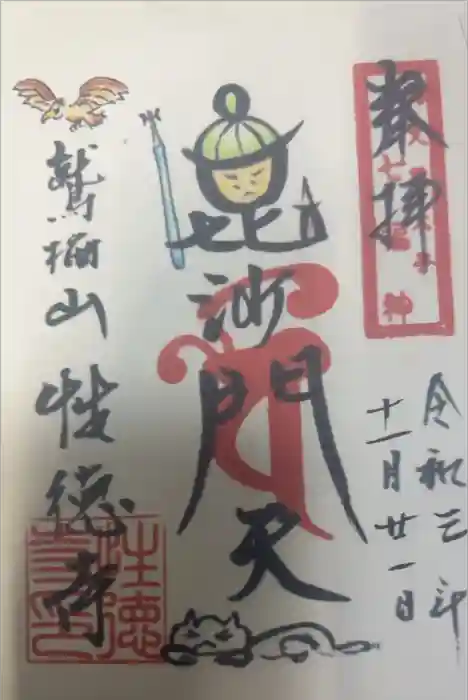 奉拝
七福神
令和三年
十一月廿一日
毘沙門天
鷲栖山
性徳寺
性徳寺